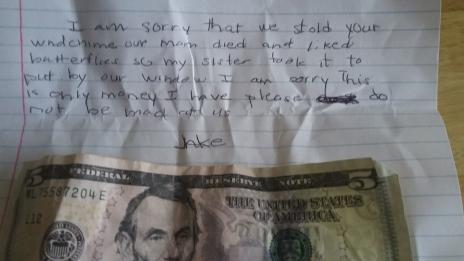 I am sorry that we stold your
windchime our mom died and liked
butterflies so my sister took it to
put by our window I am sorry This
is only money I have please do
not be mad at us
Jake
5 FEDERAL RESERVE NOTE 5
ML75587204E
THE UNITED STATES
OF AMERICA
L12